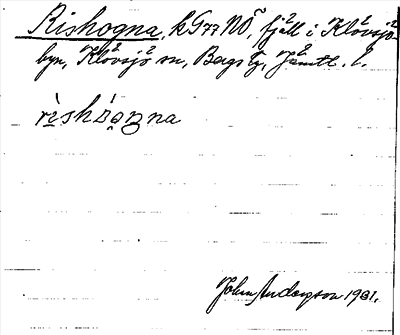 Rishogna, k G77 NÖ, fjäll i Klövsjö
byn, Klövsjö sn, Bergs tg, Jämtl. l.
John Anderzson 1931.